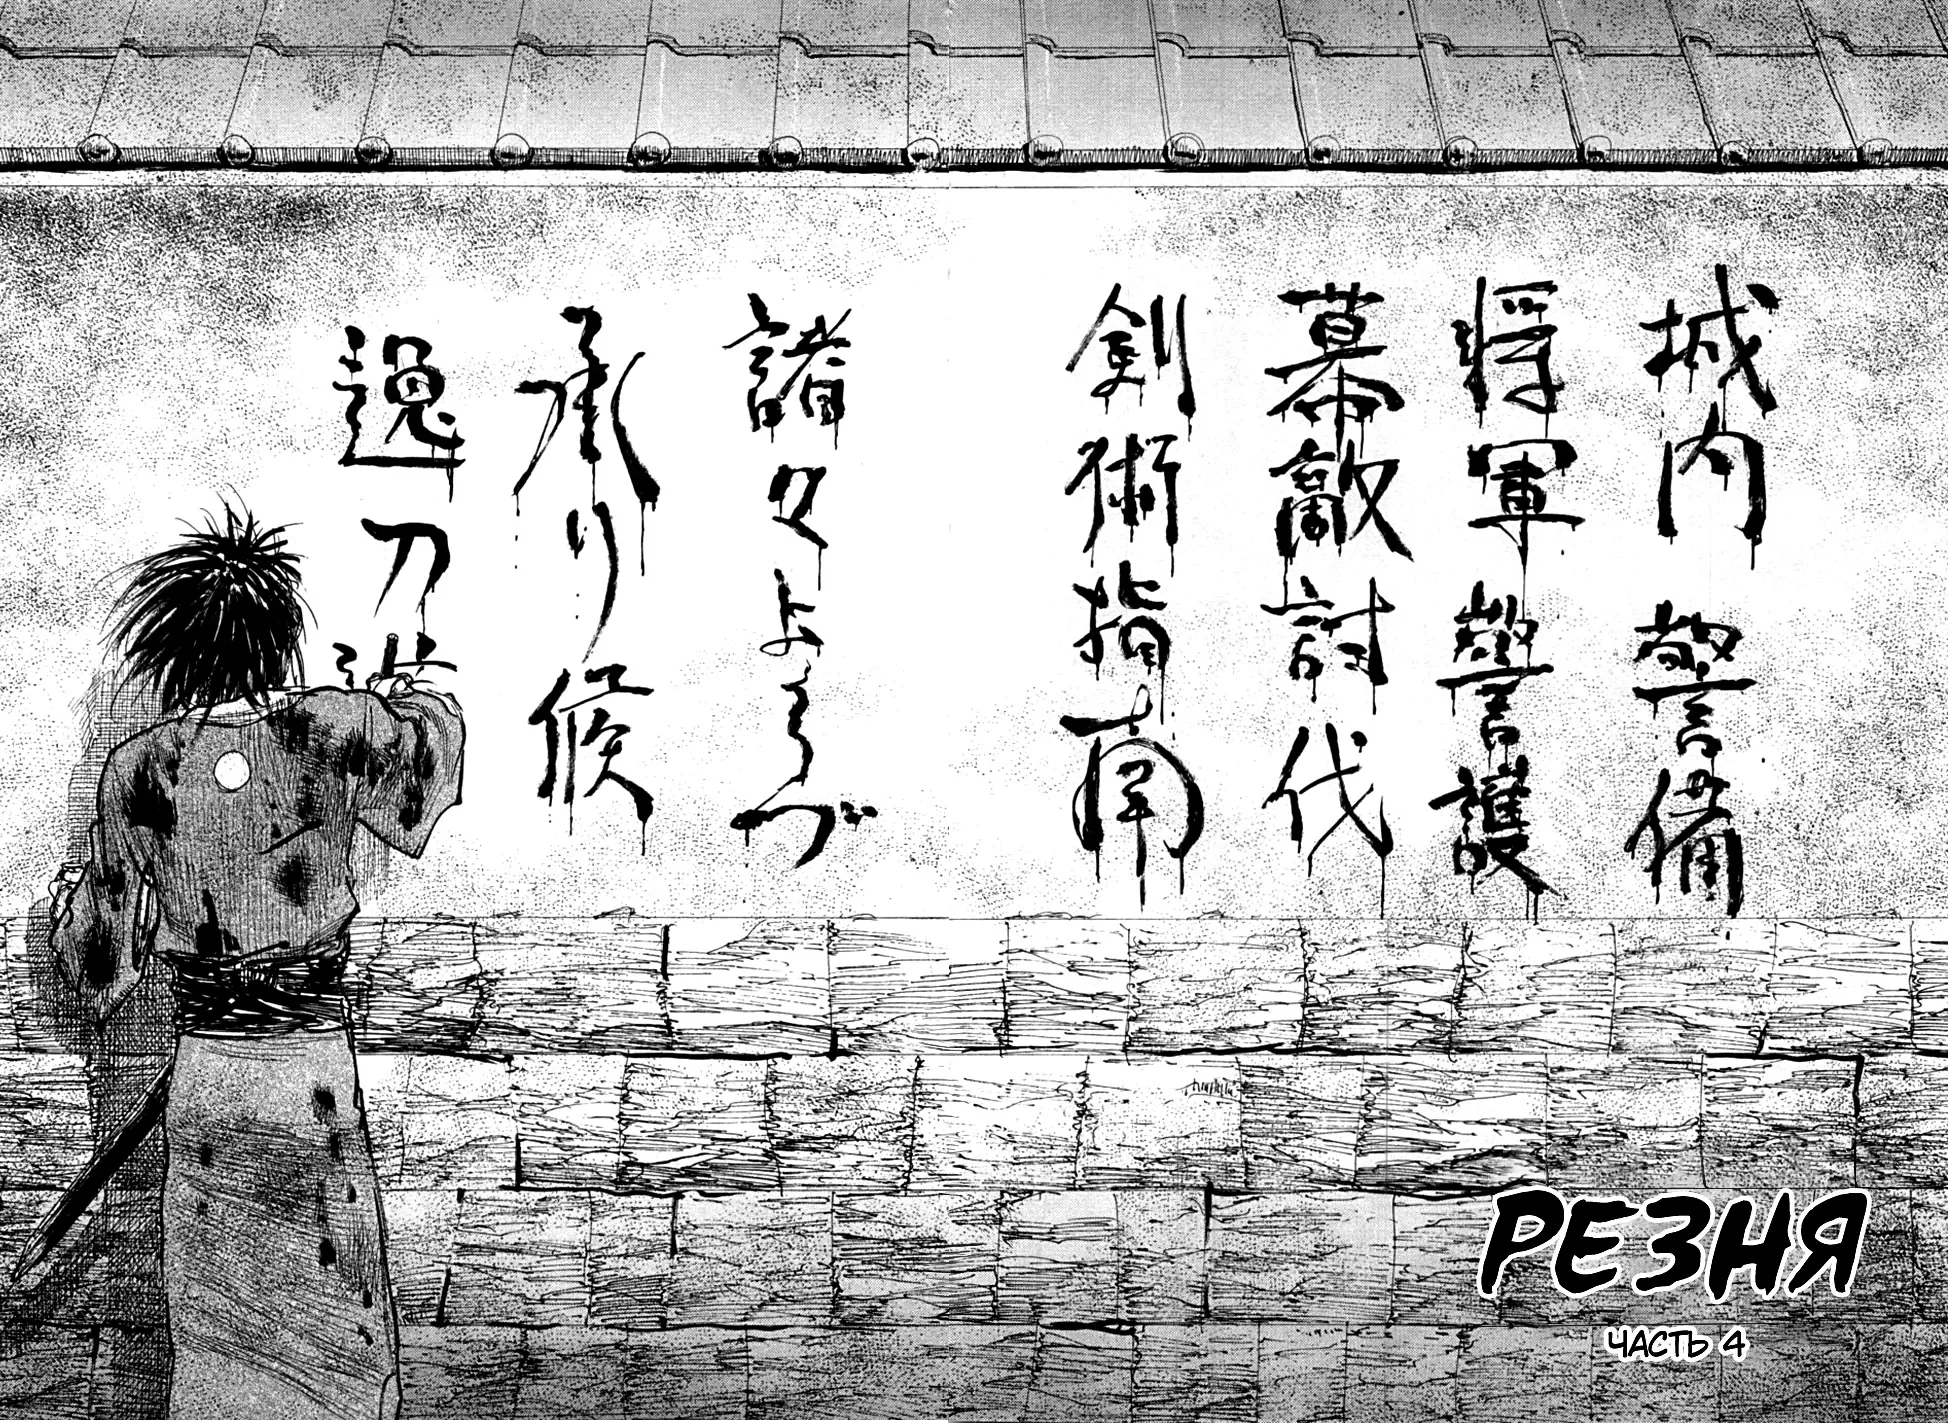 城内警備
将軍警護
幕敵討伐
剣術指南
諸々よろづ
承り候
逸刀
РЕЗНЯ
ЧАСТЬ 4